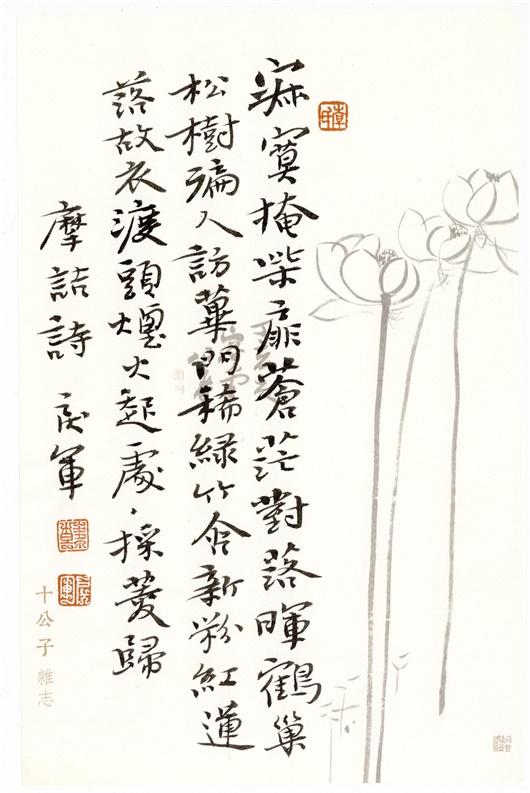 寂寞掩柴扉蒼茫對落暉鶴巢
松樹徧人訪蓽門稀綠竹含新粉紅蓮
落故衣渡頭煙火起處々採菱歸
摩詰詩 軍
十公子 雜志